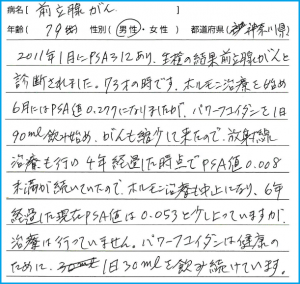 病名［ 前立腺がん ］
年齢（ 79 才） 性別（ 男性・女性 ） 都道府県（ 神奈川県）
2011年1月にPSA312あり、生検の結果前立腺がんと
診断されました。73才の時です。ホルモン治療を始め
6月にはPSA値0.277になりましたが、パワーフコイダンを1日
90ml飲み始め、がんも縮少して来たので、放射線
治療も行い4年経過した時点でPSA値0.008
未満が続いていたので、ホルモン治療も中止になり、6年
経過した現在PSA値は0.053と少し上っていますが、
治療は行っていません。パワーフコイダンは健康の
ために、1日30mlを飲み続けています。